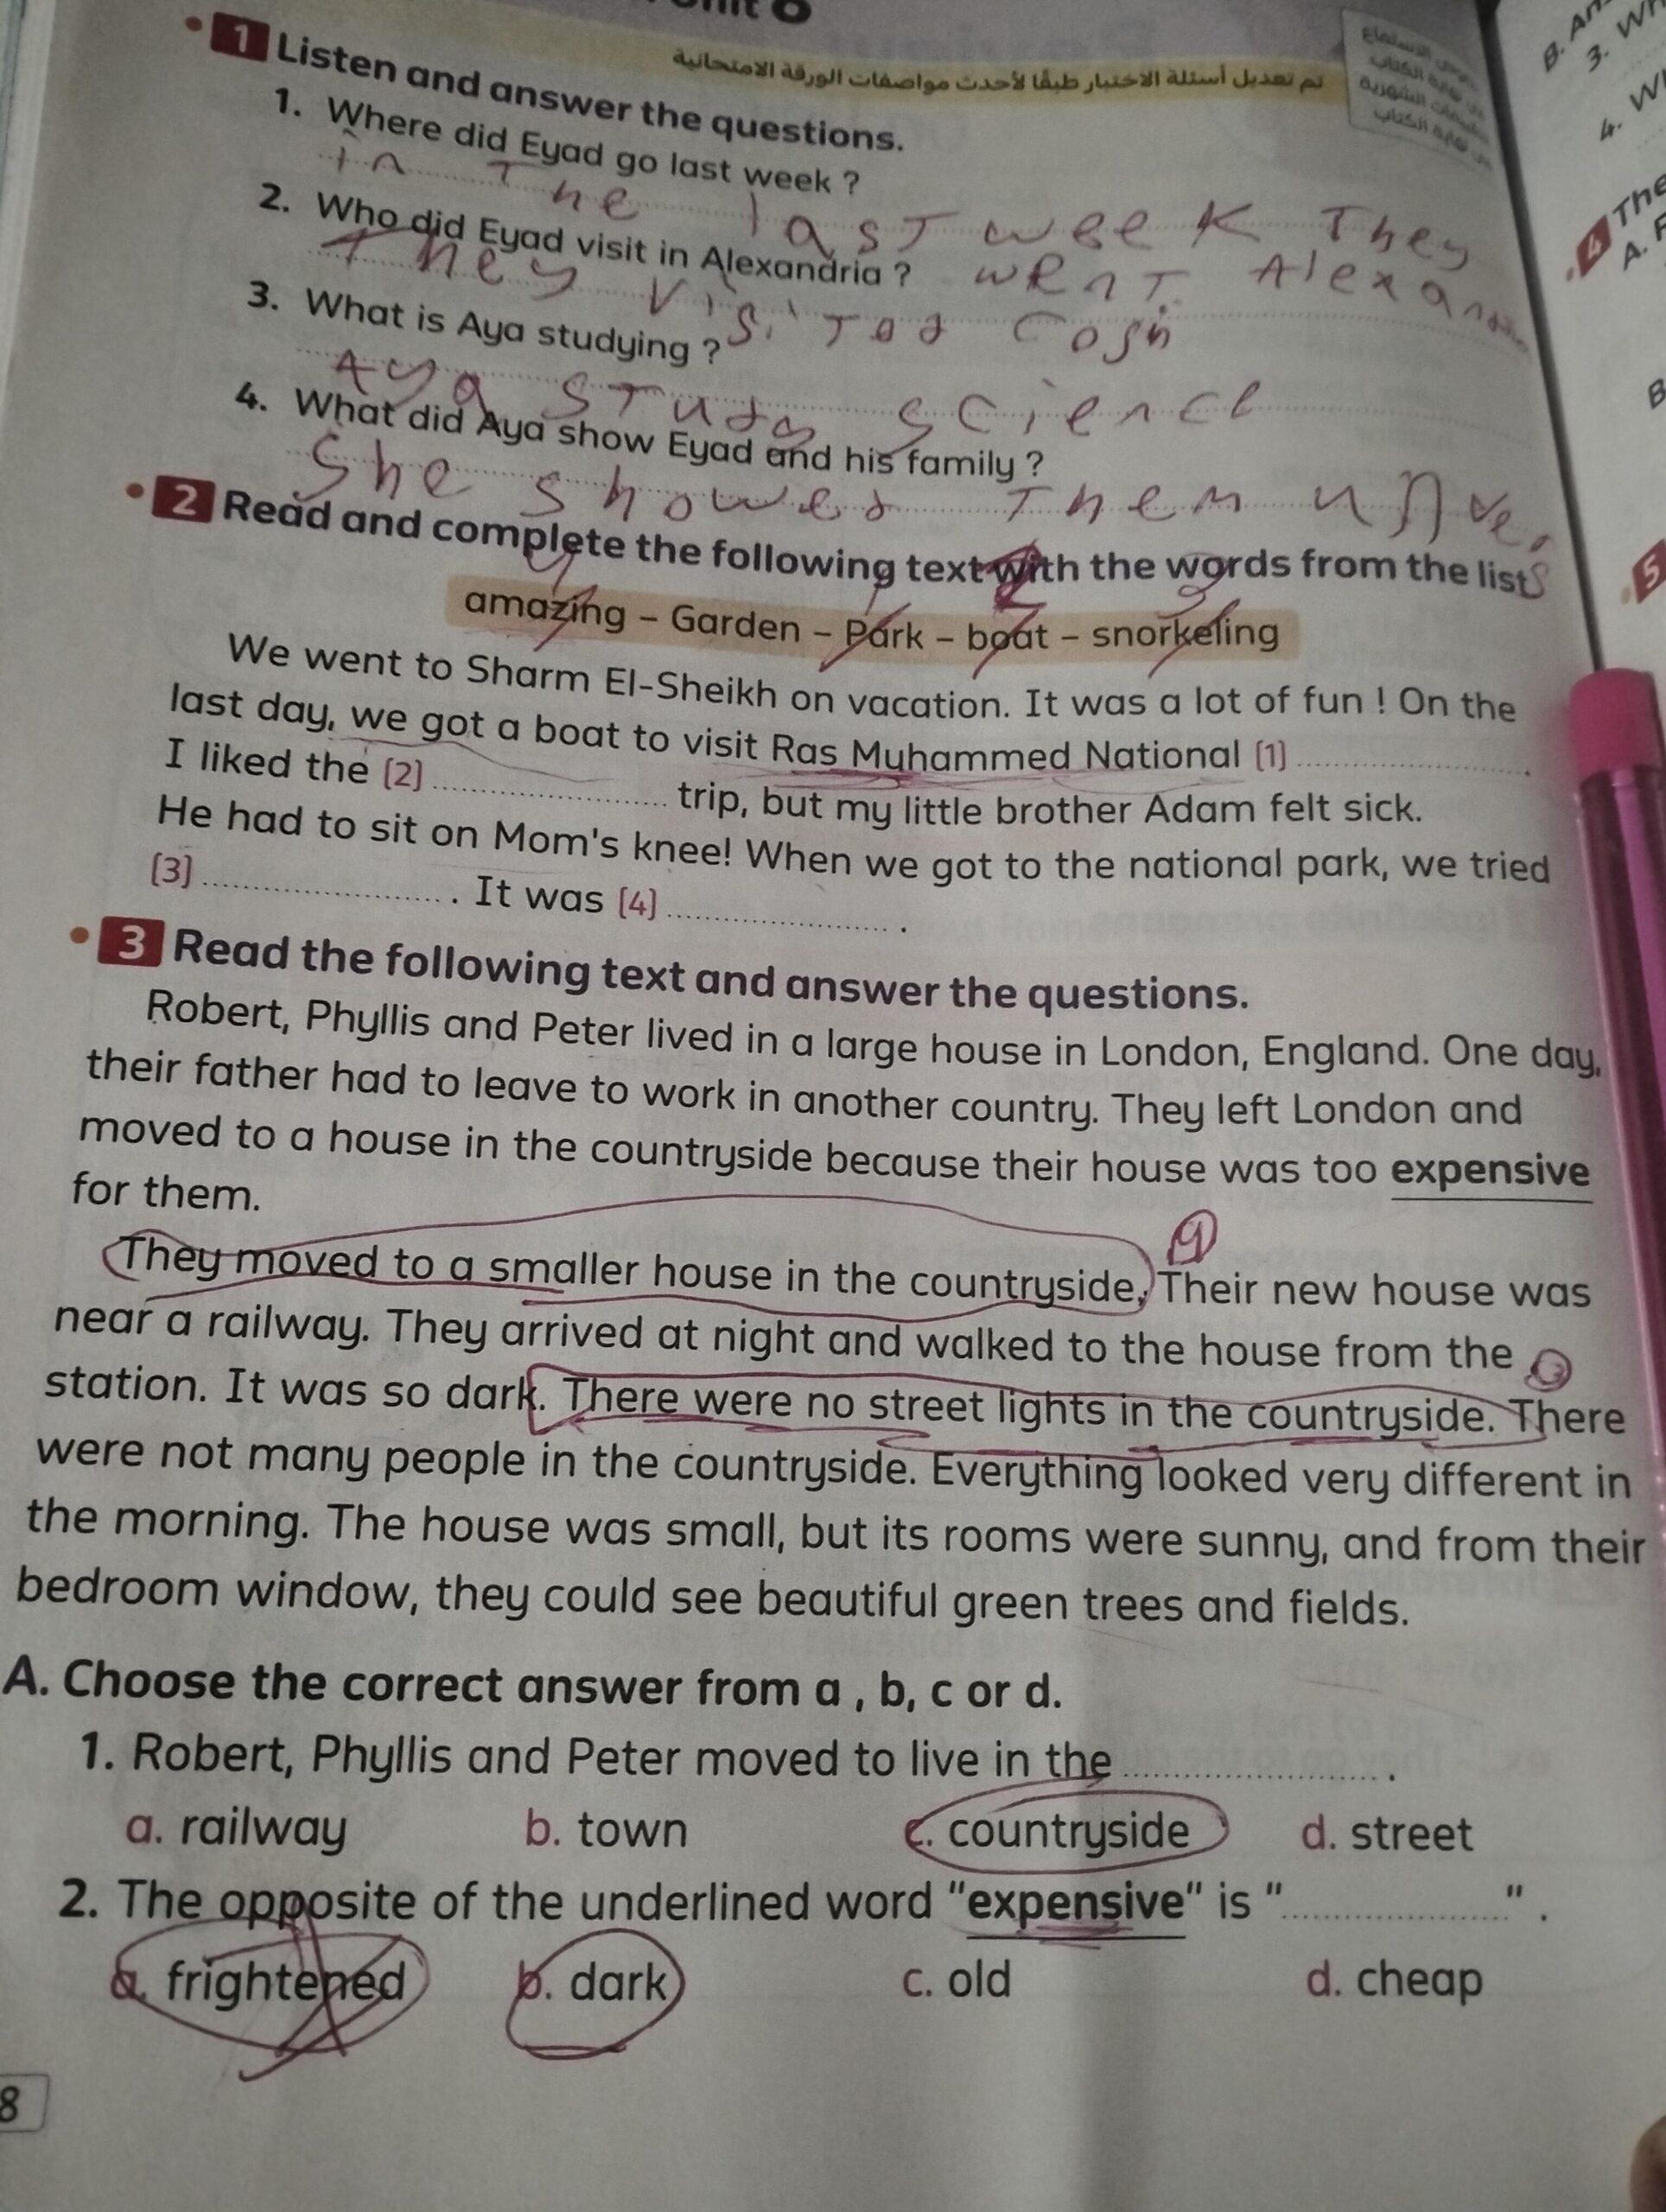 Unit 8
تم تعديل أسئلة الاختبار طبقًا لأحدث مواصفات الورقة الامتحانية
1 Listen and answer the questions.
1. Where did Eyad go last week ?
in The last week They
went Alexan
2. Who did Eyad visit in Alexandria ?
They visited
3. What is Aya studying ?
Aya study science
4. What did Aya show Eyad and his family ?
She showed Them
2 Read and complete the following text with the words from the list
4 1 2 3
amazing – Garden – Park – boat – snorkeling
We went to Sharm El-Sheikh on vacation. It was a lot of fun ! On the
last day, we got a boat to visit Ras Muhammed National (1) .................... .
I liked the (2) .................... trip, but my little brother Adam felt sick.
He had to sit on Mom's knee! When we got to the national park, we tried
(3) .................... . It was (4) .................... .
3 Read the following text and answer the questions.
Robert, Phyllis and Peter lived in a large house in London, England. One day,
their father had to leave to work in another country. They left London and
moved to a house in the countryside because their house was too expensive
for them.
They moved to a smaller house in the countryside, Their new house was
near a railway. They arrived at night and walked to the house from the
station. It was so dark. There were no street lights in the countryside. There
were not many people in the countryside. Everything looked very different in
the morning. The house was small, but its rooms were sunny, and from their
bedroom window, they could see beautiful green trees and fields.
A. Choose the correct answer from a , b, c or d.
1. Robert, Phyllis and Peter moved to live in the .................... .
a. railway b. town c. countryside d. street
2. The opposite of the underlined word "expensive" is "...................." .
a. frightened b. dark c. old d. cheap
8
B. An
3. Wh
4. Wh
4 The
A. F
B
5